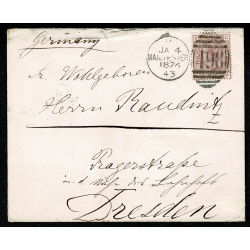 Germany
JA 4
MANCHESTER
1874
43
Sr. Wohlgeboren
Herrn Raudnitz
Pragerstraße
i. d. Nähe des Bahnhofs
Dresden